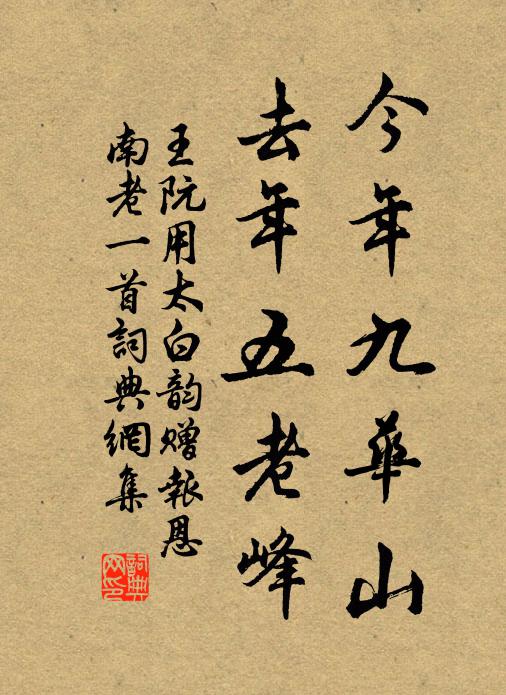 今年九華山
去年五老峰
王阮用太白韵贈報恩
南老一首詞典網集
詞典网印